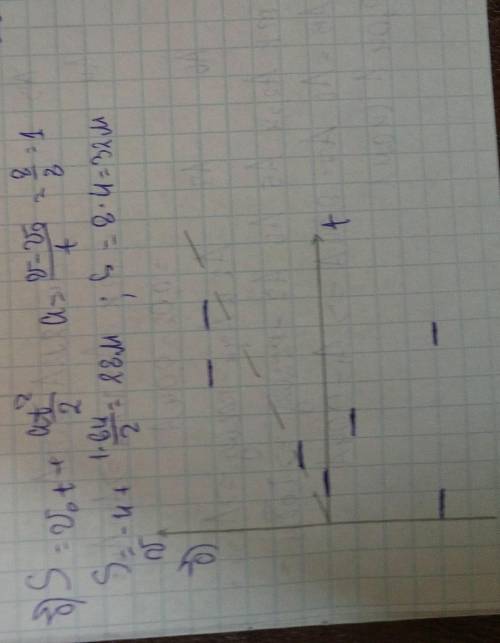 б) S = v₀t + at²/2   a = (v - v₀)/t = 8/8 = 1
S = -4 + 1·64/2 = 28м ; S = 8·4 = 32м
v
б)
t